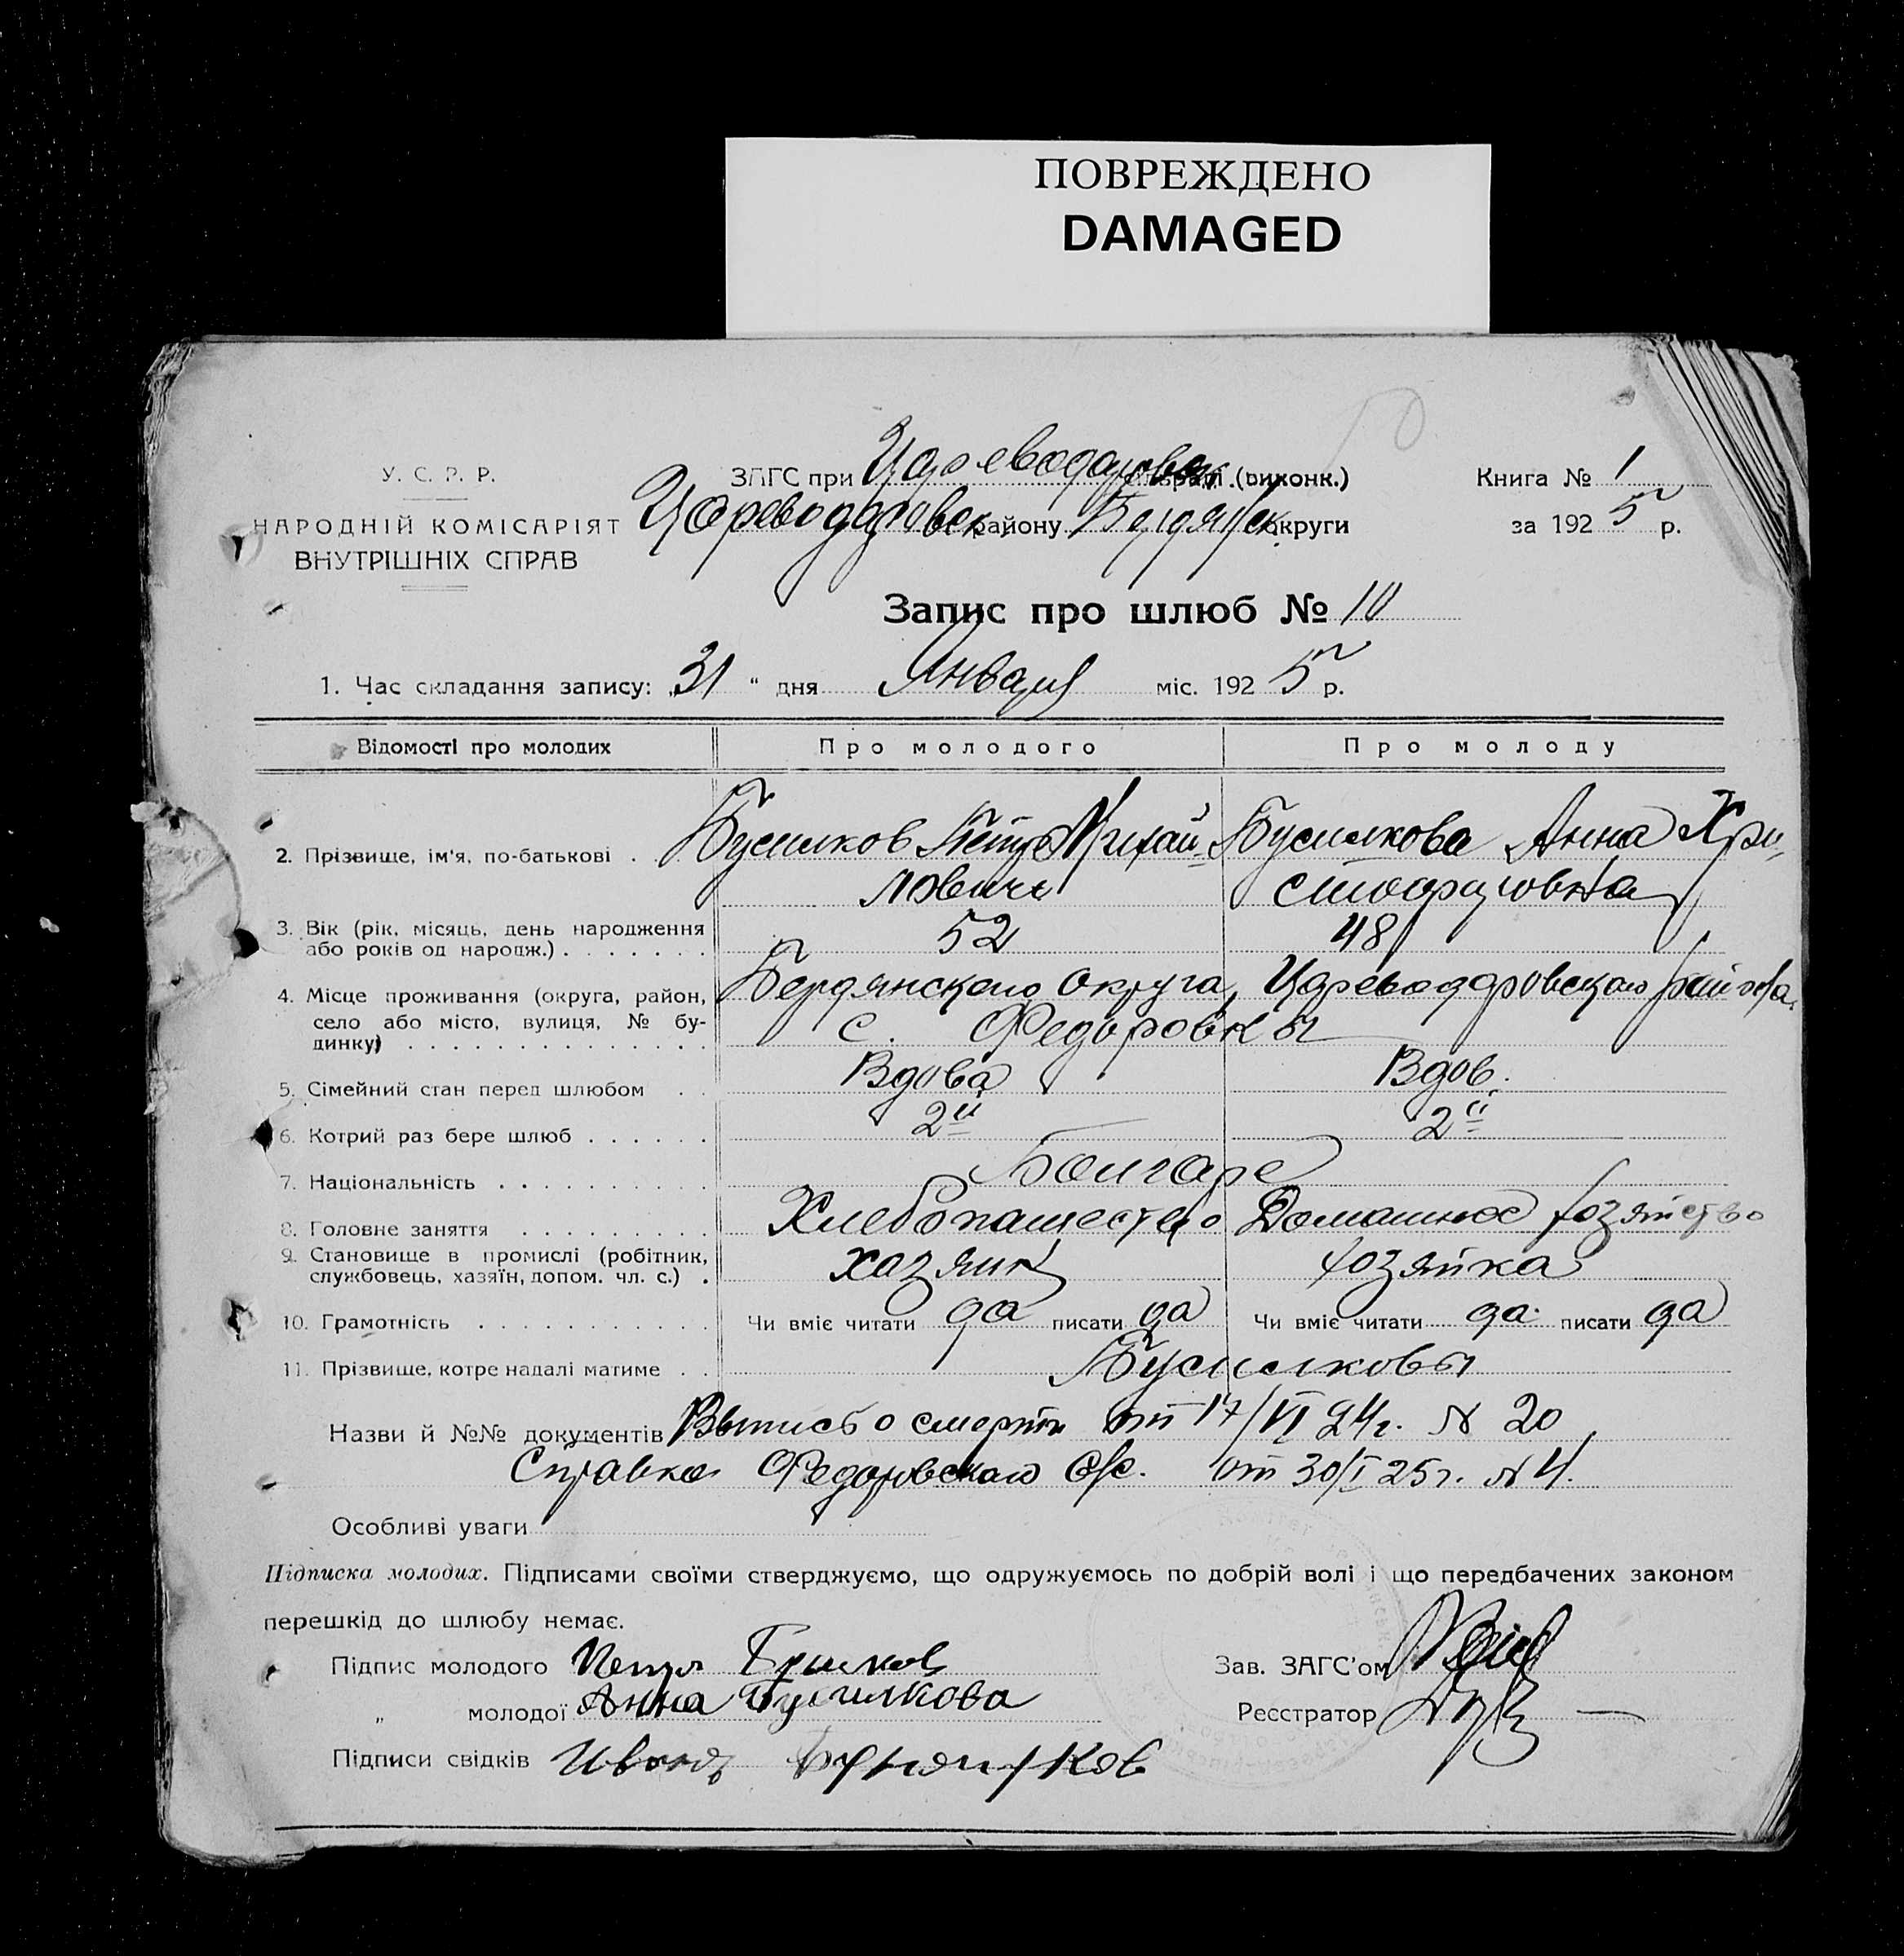 ПОВРЕЖДЕНО
DAMAGED
У. С. Р. Р.
НАРОДНІЙ КОМІСАРІЯТ
ВНУТРІШНІХ СПРАВ
ЗАГС при Цареводаровск. (виконк.)
Цареводаровск. району Бердянск. округи
Книга № 1
за 1925 р.
Запис про шлюб № 10
1. Час складання запису: „31“ дня Января міс. 1925 р.
Відомості про молодих Про молодого Про молоду
2. Прізвище, ім'я, по-батькові . . Бусилков Петр Михай- Бусилкова Анна Хри-
ловичъ стофоровна
3. Вік (рік, місяць, день народження
або років од народж.) . . . . . . . 52 48
4. Місце проживання (округа, район,
село або місто, вулиця, № бу-
динку) . . . . . . . . . . . . . .
Бердянского округа, Цареводаровского района,
с. Федоровки
5. Сімейний стан перед шлюбом . . Вдова Вдов.
6. Котрий раз бере шлюб . . . . . . 2й 2й
7. Національність . . . . . . . . . . Болгаре
8. Головне заняття . . . . . . . . . Хлебопашество Домашнее хозяйство
9. Становище в промислі (робітник,
службовець, хазяїн, допом. чл. с.) . хазяин хозяйка
10. Грамотність . . . . . . . . . . . Чи вміє читати да писати да Чи вміє читати да писати да
11. Прізвище, котре надалі матиме . . Бусилковы
Назви й №№ документів Выпись о смерти от 17/VI 24г. № 20
Справка Федоровского с/с. от 30/I 25г. № 4.
Особливі уваги
Підписка молодих. Підписами своїми стверджуємо, що одружуємось по добрій волі і що передбачених законом
перешкід до шлюбу немає.
Підпис молодого Петр
Зав. ЗАГС'ом
„ молодої Анна Бусилкова
Реєстратор
Підписи свідків Иванъ